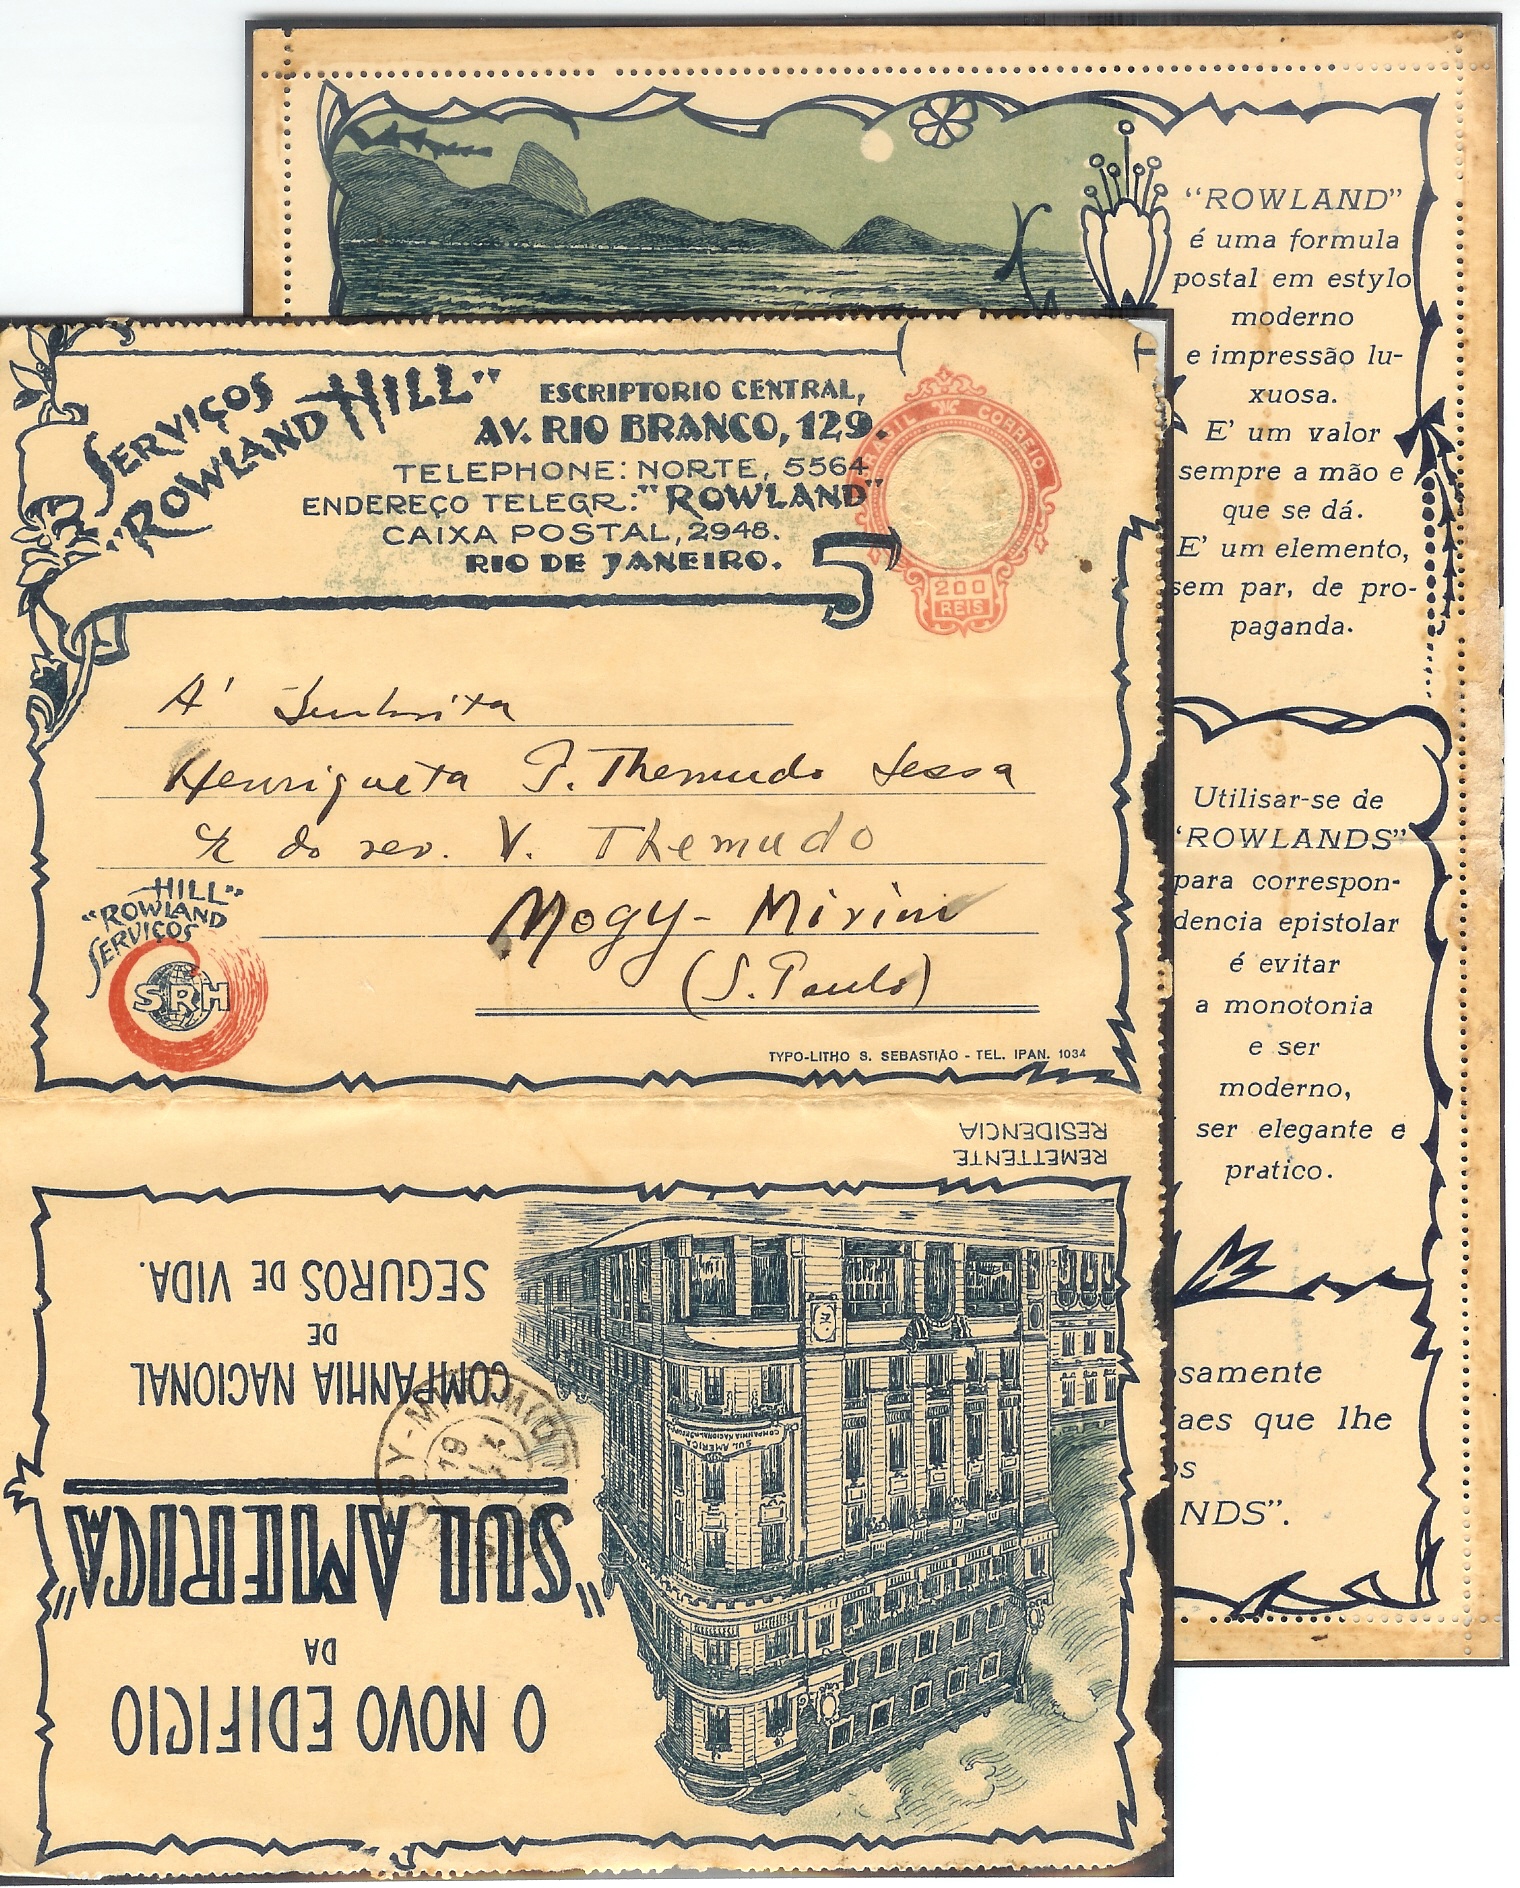 "ROWLAND"
é uma formula
postal em estylo
moderno
e impressão lu-
xuosa.
E' um valor
sempre a mão e
que se dá.
E' um elemento,
sem par, de pro-
paganda.
Utilisar-se de
"ROWLANDS"
para correspon-
dencia epistolar
é evitar
a monotonia
e ser
moderno,
ser elegante e
pratico.
osamente
aes que lhe
os
NDS".
SERVIÇOS
"ROWLAND HILL"
ESCRIPTORIO CENTRAL,
AV. RIO BRANCO, 129.
TELEPHONE: NORTE, 5564
ENDEREÇO TELEGR.: "ROWLAND"
CAIXA POSTAL, 2948.
RIO DE JANEIRO.
BRASIL CORREIO
200
REIS
A' Senhorita
Henriqueta P. Themudo Lessa
do rev. V. Themudo
Mogy-Mirim
(S. Paulo)
HILL"
"ROWLAND
SERVIÇOS
SRH
TYPO-LITHO S. SEBASTIÃO - TEL. IPAN. 1034
REMETTENTE
RESIDENCIA
O NOVO EDIFICIO
DA
"SUL AMERICA"
COMPANHIA NACIONAL
DE
SEGUROS DE VIDA.
SUL AMERICA
COMPANHIA NACIONAL
19